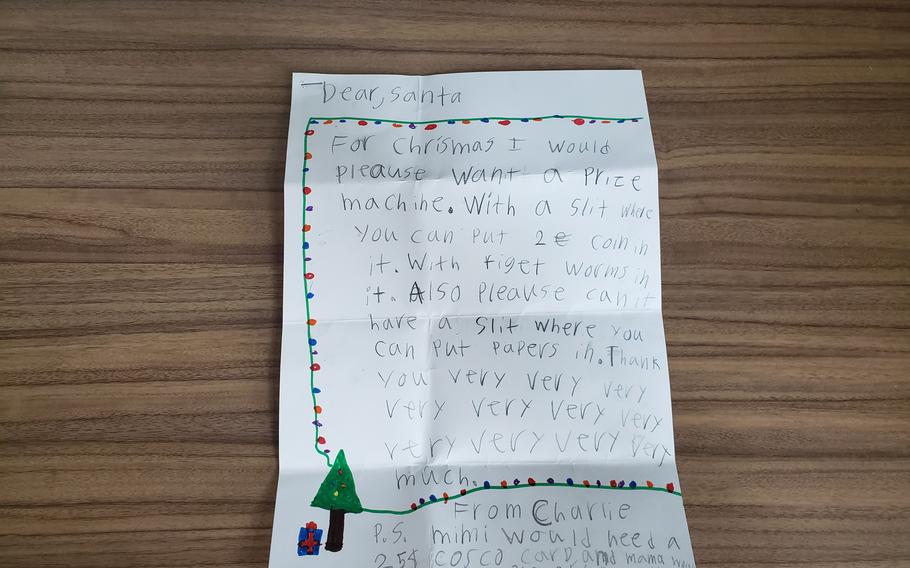 Dear, santa
For Chrismas I would
pleause want a Prize
machine. With a slit where
you can put 2€ coin in
it. With figet worms in
it. Also Pleause can it
have a slit where you
can put papers in. Thank
you very very very
very very very very
very very very very
much.
From Charlie
P.S. mimi would need a
cosco card, and mama